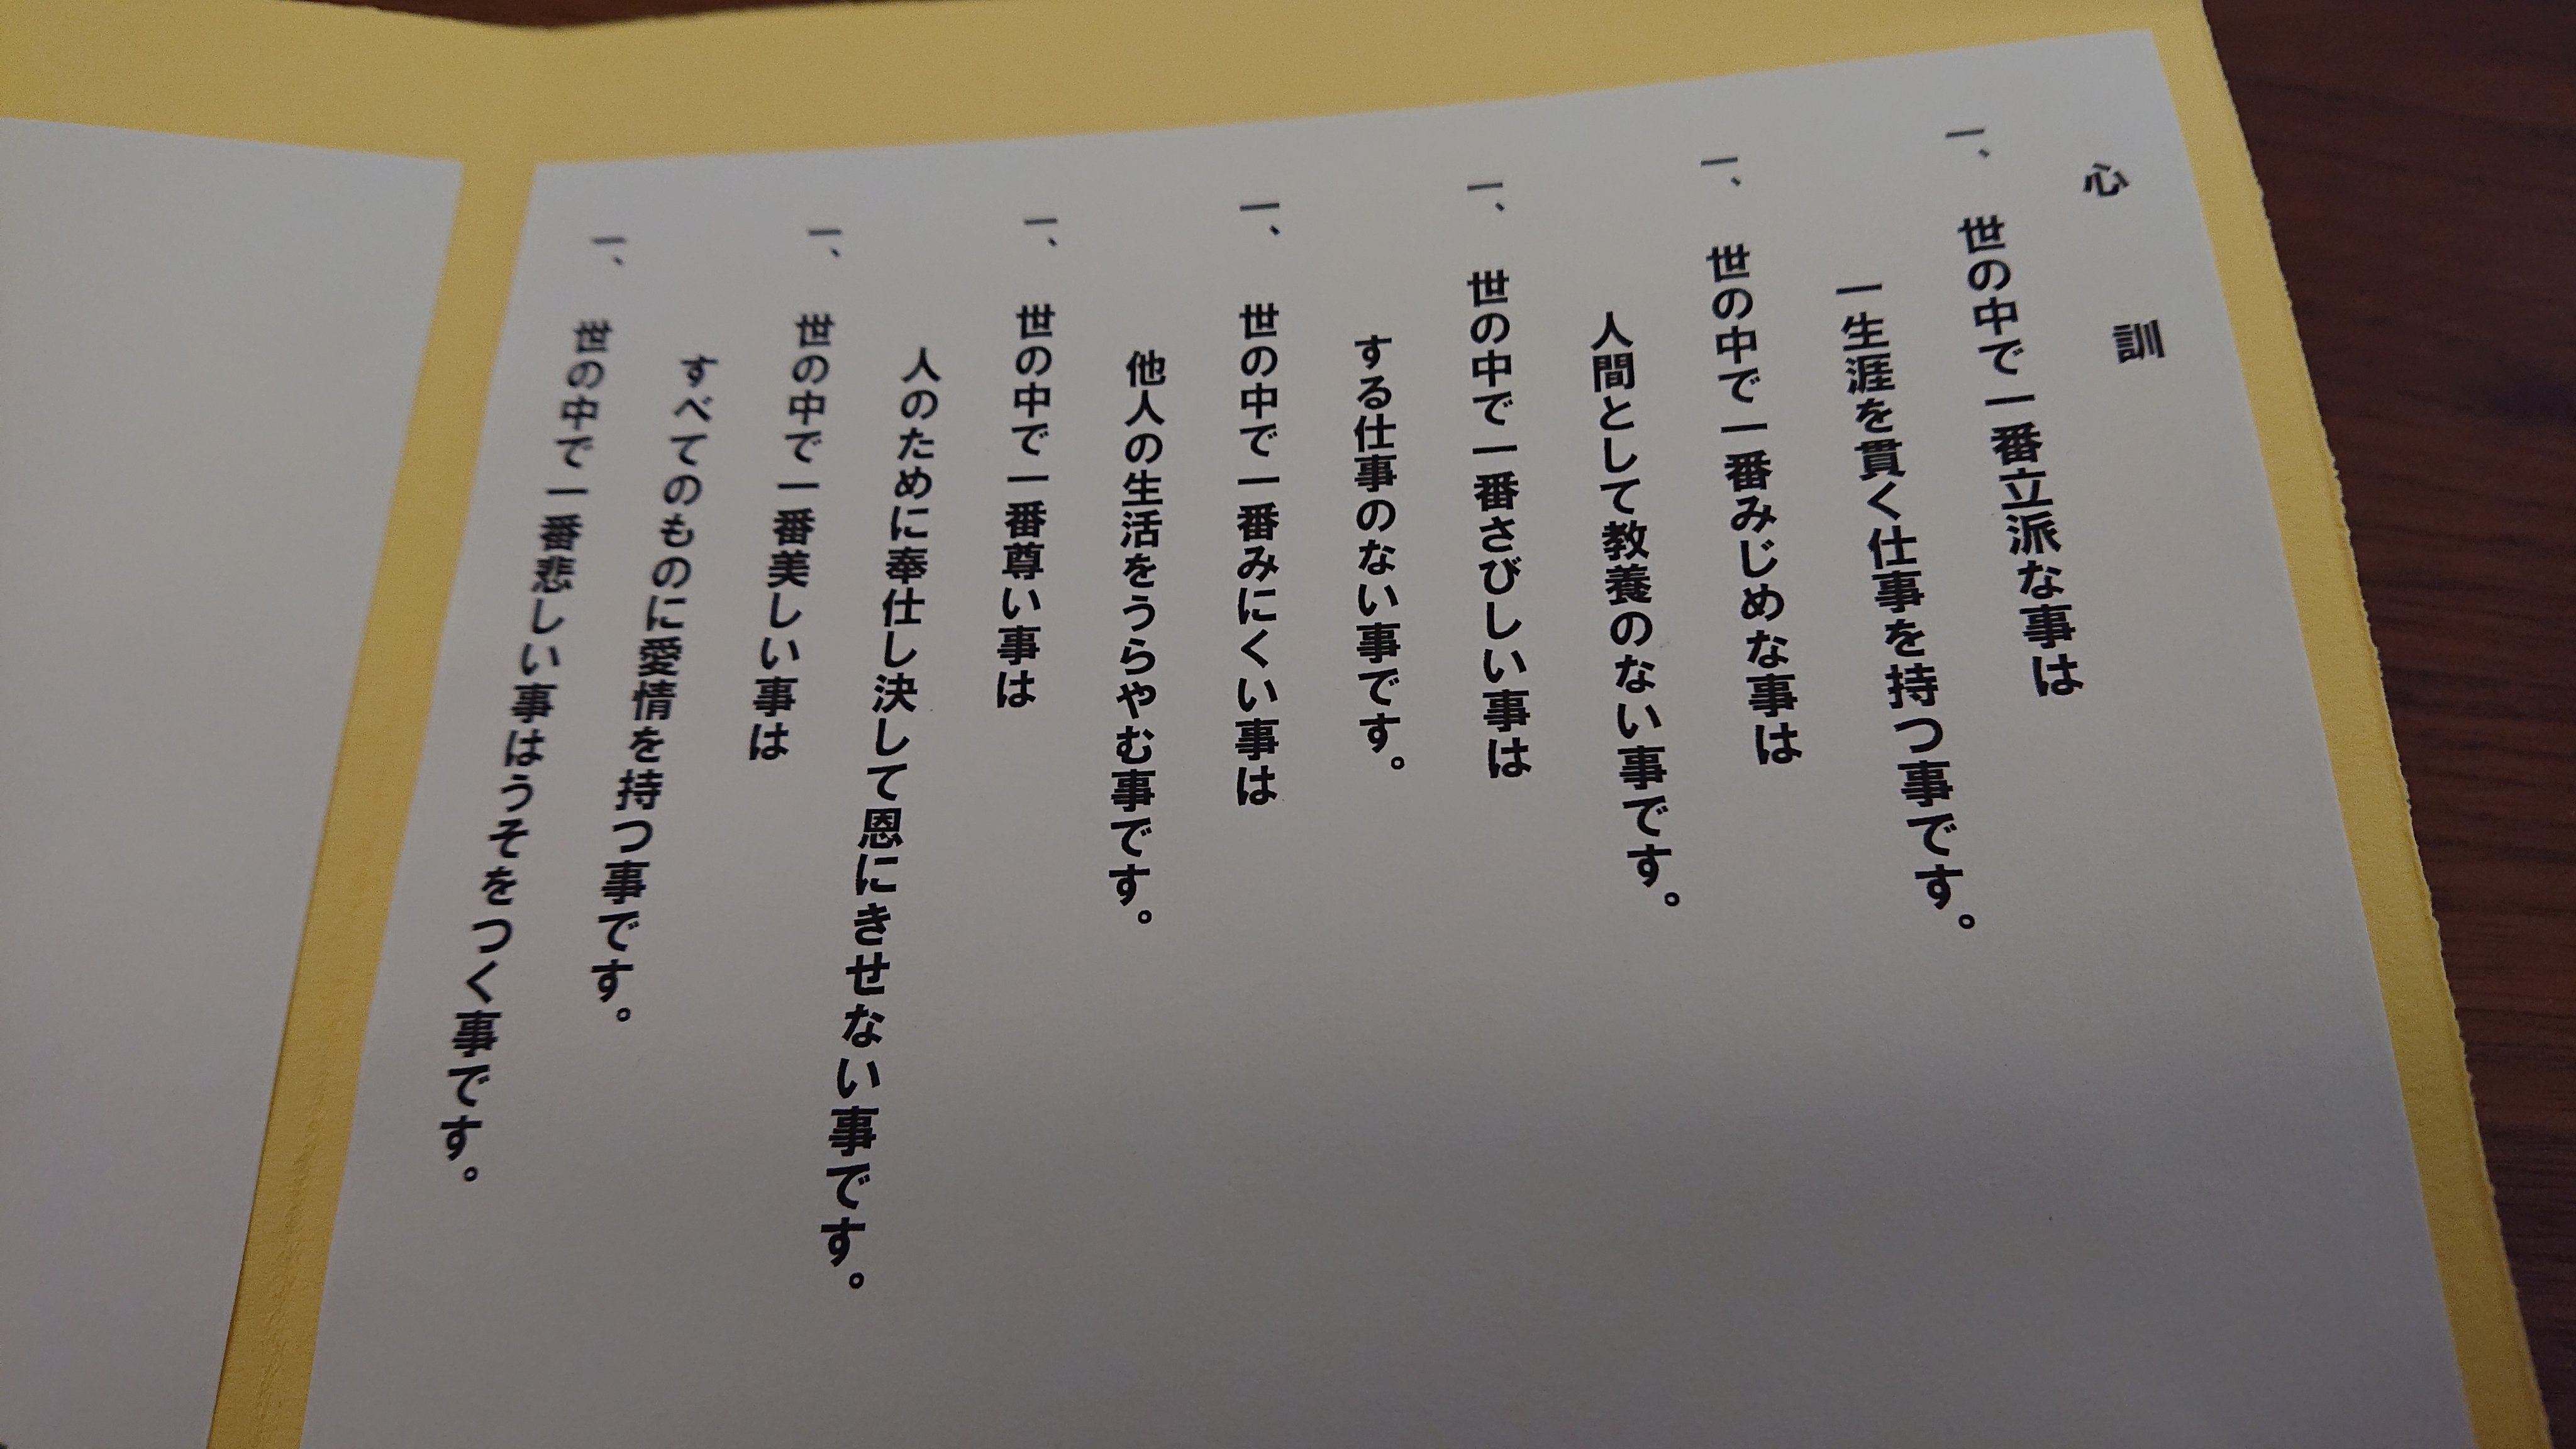 心訓
一、世の中で一番立派な事は
一生涯を貫く仕事を持つ事です。
一、世の中で一番みじめな事は
人間として教養のない事です。
一、世の中で一番さびしい事は
する仕事のない事です。
一、世の中で一番みにくい事は
他人の生活をうらやむ事です。
一、世の中で一番尊い事は
人のために奉仕し決して恩にきせない事です。
一、世の中で一番美しい事は
すべてのものに愛情を持つ事です。
一、世の中で一番悲しい事はうそをつく事です。